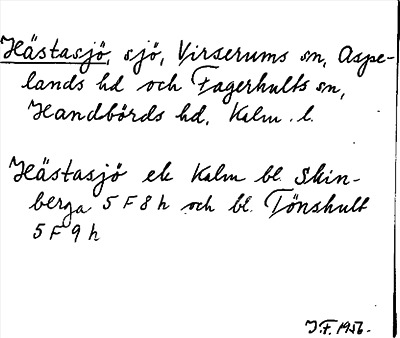 Hästasjö, sjö, Virserums sn, Aspe-
lands hd och Fagerhults sn,
Handbörds hd, Kalm. l.
Hästasjö ek Kalm bl. Skin-
berga 5 F 8 h och bl. Tönshult
5 F 9 h
J.F. 1956.